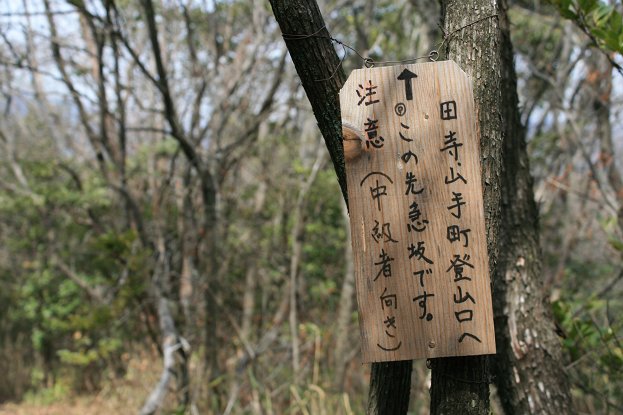 田寺・山手町登山口へ
↑◎この先急坂です。
注意(中級者向き)